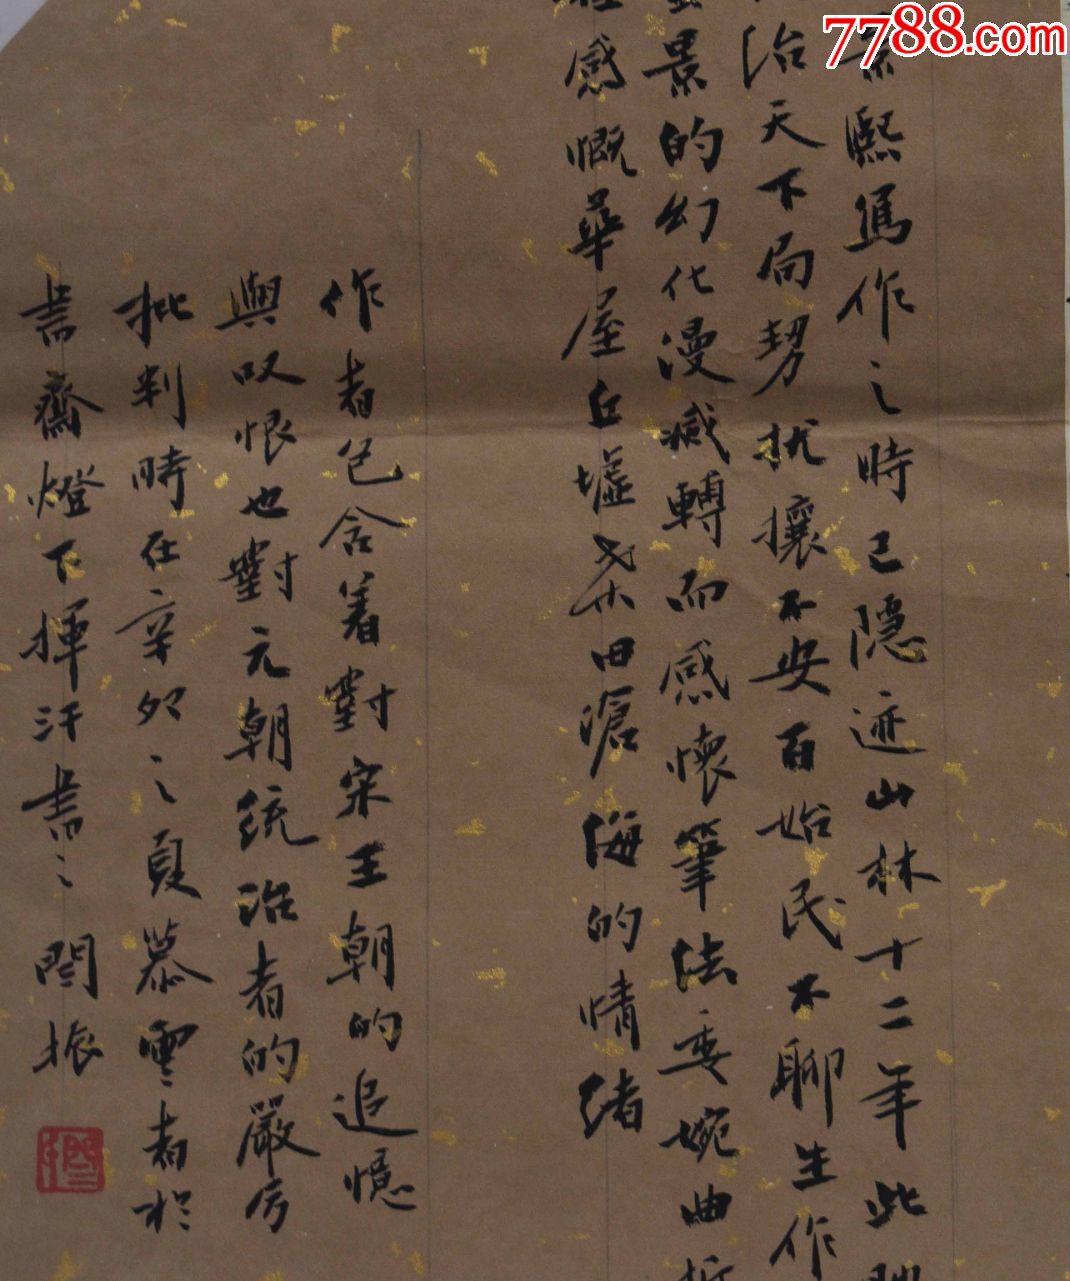 7788.com
景熙焉作之時已隐迹山林十二年此
治天下局势扰攘不安百始民不聊生作
景的幻化漫减轉而感懷筆法委婉曲折
感慨華屋丘墟桑田滄海的情绪
作者包含着對宋王朝的追憶
與叹恨也對元朝统治者的嚴厉
批判時在辛卯之夏慕雲者於
書齋燈下揮汗書之閆振